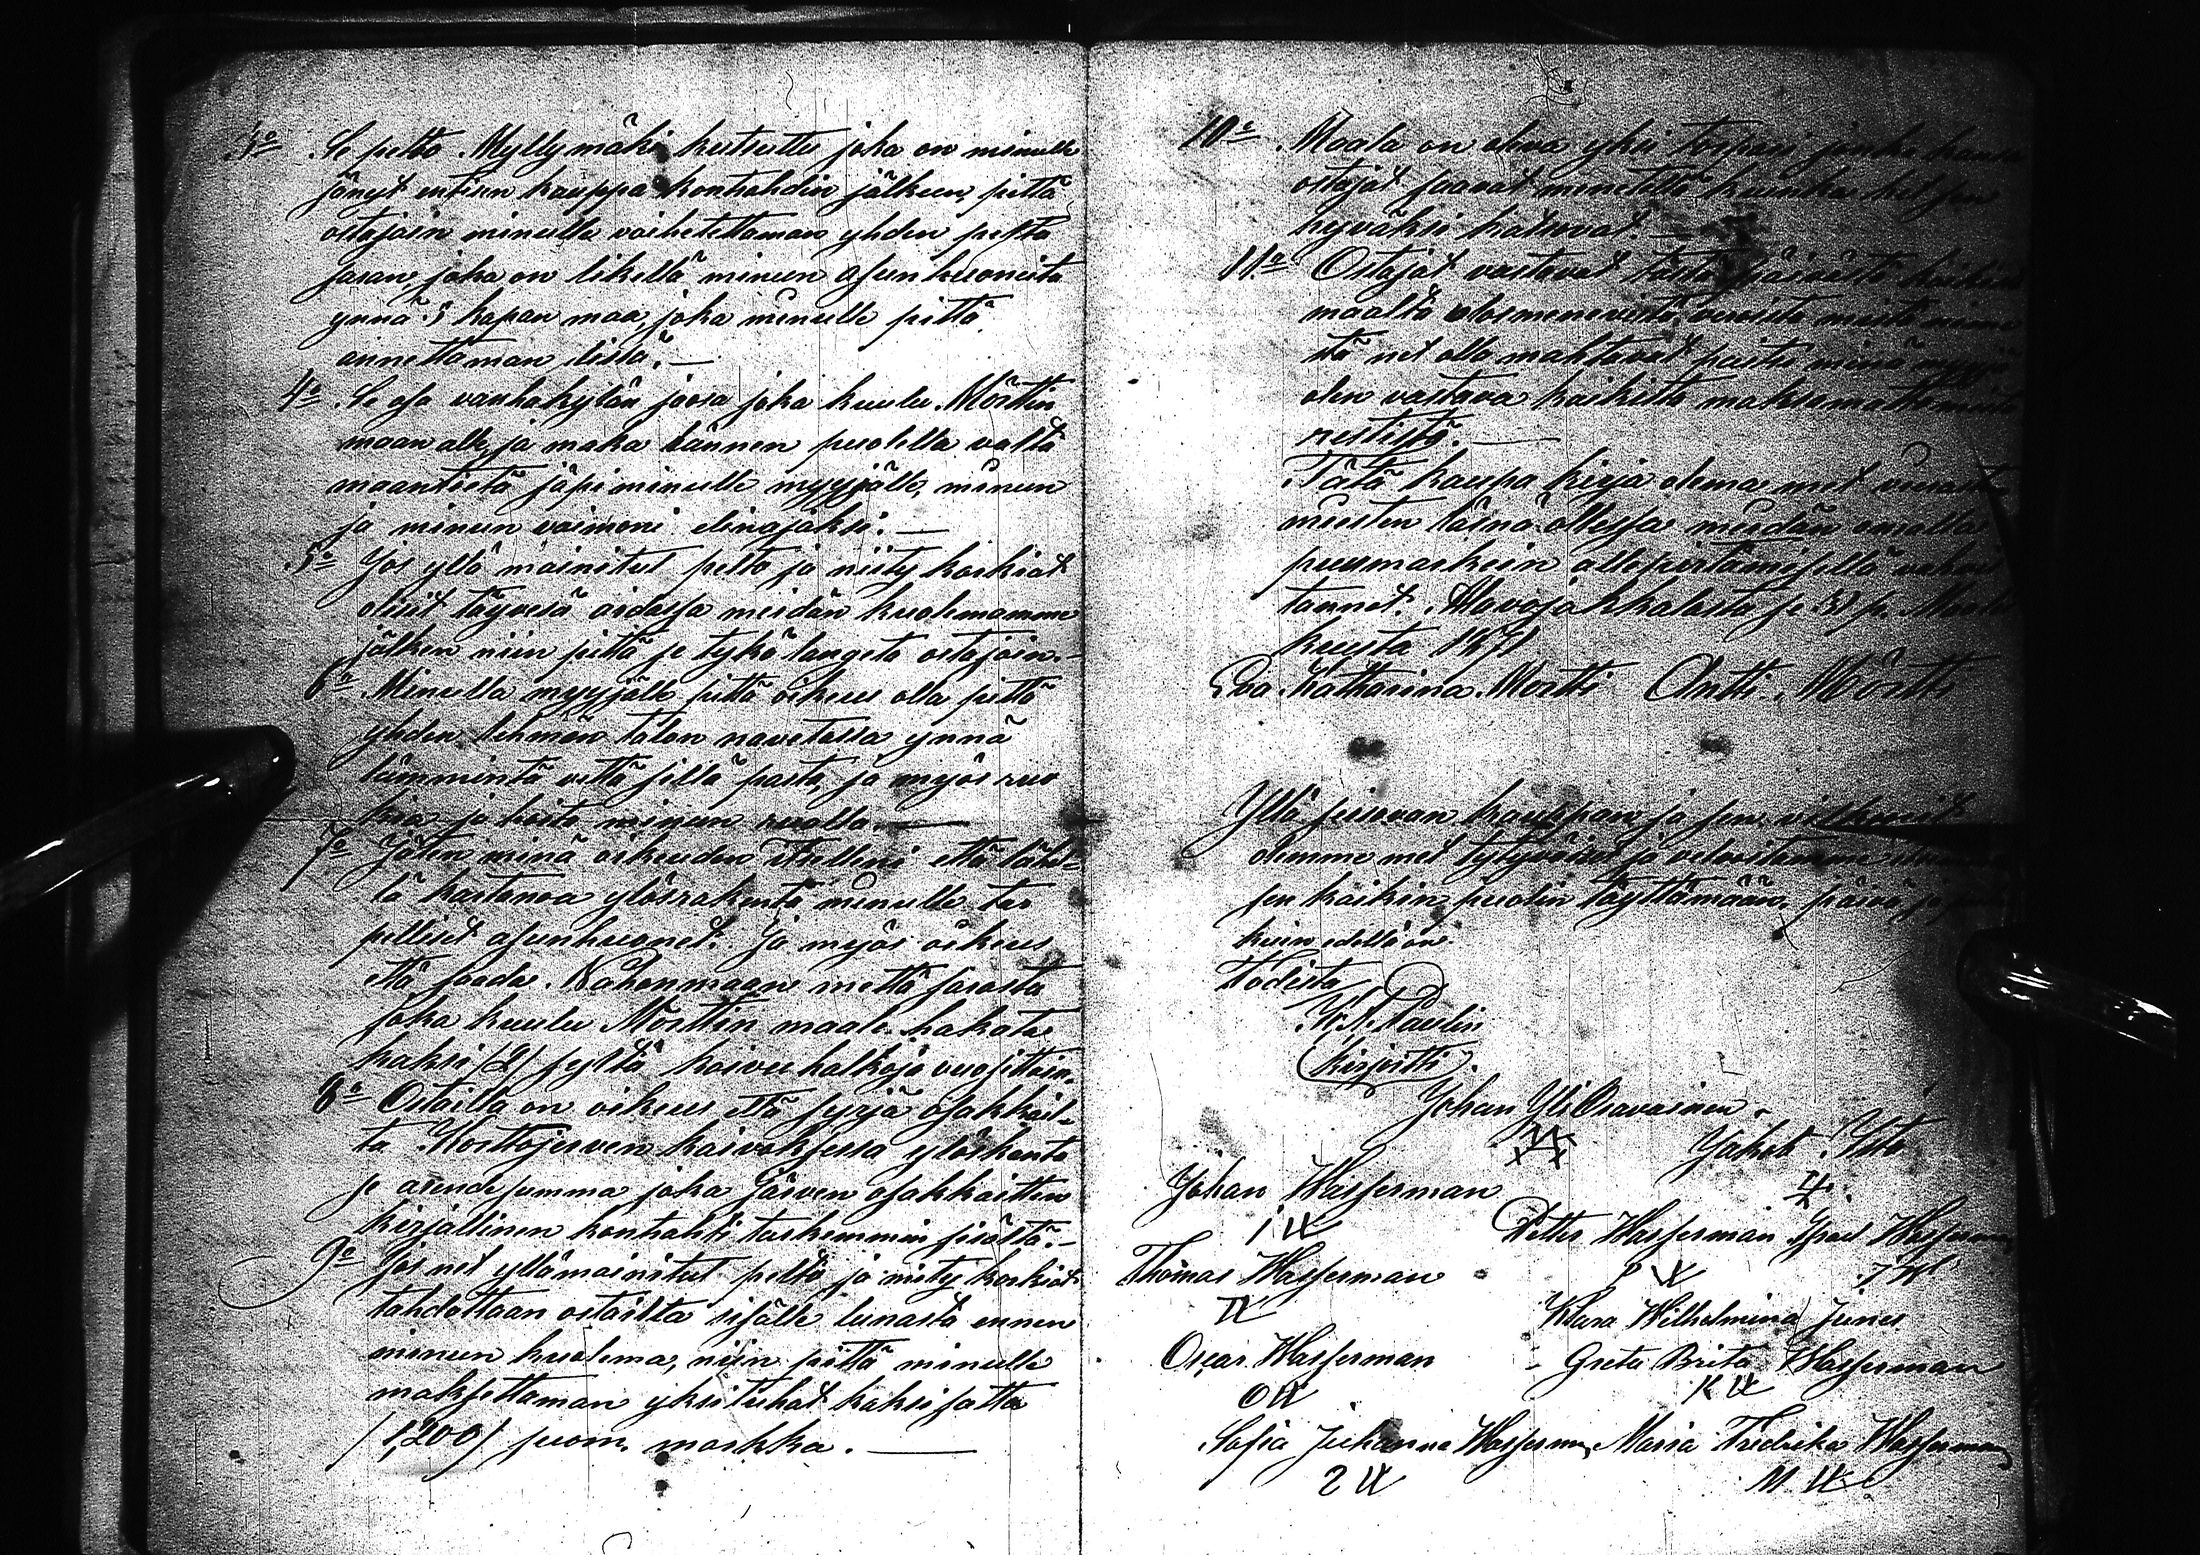 3o Se pelto Myllymäki kutsuttu joka on minulle
jänyt entisen kauppa kontrahdin jälkeen, pittä
ostajain minulle vaihetettaman yhden pelto
saran, joka on likellä minun asunhuoneita
ynnä 3 kapan maa, joka minulle pittä
annettaman lisä. —
4o Se osa vanhakylän joosa joka kuulu Mörttin
maan alle, ja maka lännen puolella valta
maantietä jäpi minulle myyjälle, minun
ja minun vaimoni elinajaksi. —
5o Jos yllä mainitut pelto ja niity koskiat
olisit täyvesä aidassa meidän kuolemamme
jälken niin pittä se tykö langeta ostajain. —
6o Minulla myyjälle pittä oikeus olla pittä
yhden lehmän talon navetassa ynnä
lämmintä vettä sillä pasta, ja myös ruo
kia ja hoito minun nualla. —
7o Jälen minä oikeuden itselleni että tähs-
tä kartanoa ylösrakenta minulle tar
pelliset asunhuonet. Ja myös oikeus
että saada Kahonmaan mettä sarasta
joka kuulu Morttin maale hakata
kaksi /2/ syltä koivu halkoja vuosittain.
8o Ostailla on oikeus että syyjä osakkail-
ta Korttojerven kaivoksessa ylöskanta
se arende summa joka Järven osakkaitten
kirjallinen kontrahti tarkemmin sisältä. —
9o Jos net yllämainitut pelto ja niity koskiat
tahdottaan ostailta sisälle lunasta ennen
minun kuolema, niin pittä minulle
maksettaman yksituhat kaksisatta
/1,200/ suom. markka. —
10o Maala on oleva yksi torpari jonka kansa
ostajat saavat menetellä kuinka het sen
hyväksi katsovat. —
11o Ostajat vastavat tästä päivästä kaikista
maalta ulosmenevistä veroista mitä nime
ttä net olla mahtavat paitsi minä myyjä
olen vastava kaikista maksamattomista
restistä. —
Tätä kaupa kirja olema met vierasten
miesten läsnä ollessa meidän omalla
puumarkein allepirtämisellä vahvis
tannet. Alavojakkalasta se 31 p. Maalis
kuusta 1871
Eva Katharina Mortti Antti Mörtti
Yllä seisovan kauppan ja sen vilkuuit
olemme met tytyväiset ja velvoitamme
sen kaikin puolin täyttämään, päivä ja
kuin edellä on.
Todista
K. A. Paulin
(kirjoitti).
Johan Yli Oravainen
Jakob Ylitö
Johan Wasserman
I U
Petter Wasserman Israel Wasserman
P U
Thomas Wasserman
T U
Klara Wilhelmina Junes
Oscar Wasserman - Greta Brita Wasserman
O U K U
Sofia Johanna Wasserman, Maria Fredrika Wasserman
2 U M U